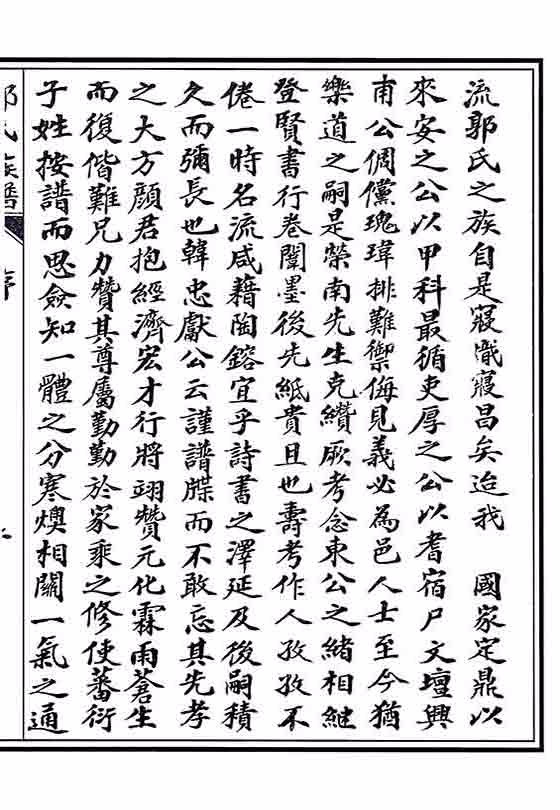 流郭氏之族自是寢熾寢昌矣迨我　國家定鼎以
來安之公以甲科最循吏厚之公以耆宿尸文壇興
甫公倜儻瑰瑋排難禦侮見義必為邑人士至今猶
樂道之嗣是榮南先生克纘厥考念東公之緒相繼
登賢書行卷闈墨後先紙貴且也壽考作人孜孜不
倦一時名流咸藉陶鎔宜乎詩書之澤延及後嗣積
久而彌長也韓忠獻公云謹譜牒而不敢忘其先孝
之大方顏君抱經濟宏才行將翊贊元化霖雨蒼生
而復偕難兄力贊其尊屬勤勤於家乘之修使蕃衍
子姓按譜而思僉知一體之分寒燠相關一氣之通
郭氏族譜　序